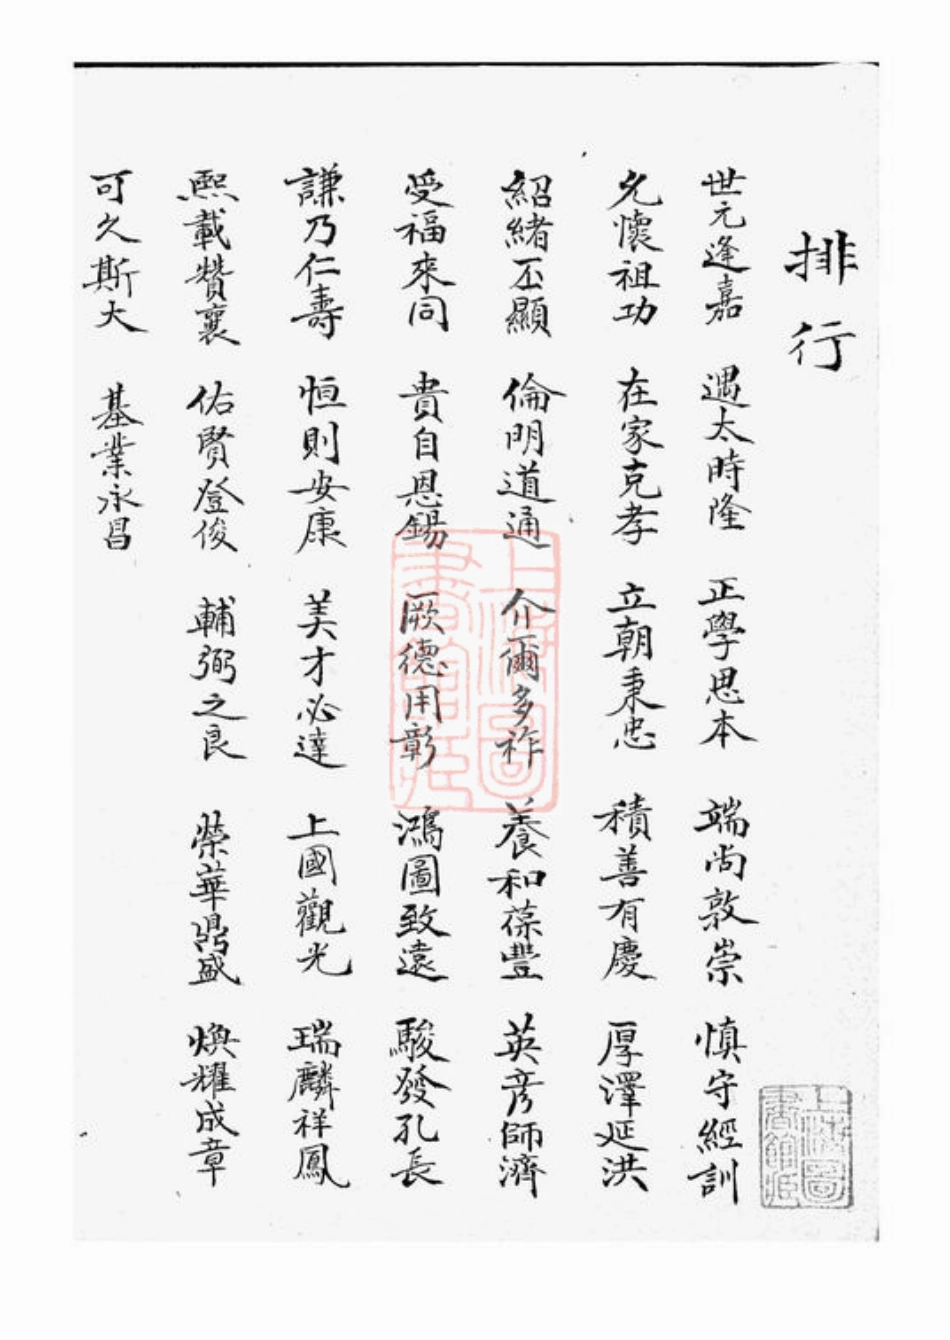 排行
世元逢嘉 遇太時隆 正學思本 端尚敦崇 慎守經訓
允懷祖功 在家克孝 立朝秉忠 積善有慶 厚澤延洪
紹緒丕顯 倫明道通 介爾多祚 養和葆豐 英彦師濟
受福來同 貴自恩錫 厥德用彰 鴻圖致遠 駿發孔長
謙乃仁壽 恒則安康 美才必達 上國觀光 瑞麟祥鳳
熙載贊襄 佑賢登俊 輔弼之良 榮華鼎盛 煥耀成章
可久斯大 基業永昌
上海圖書館藏
上海圖書館藏